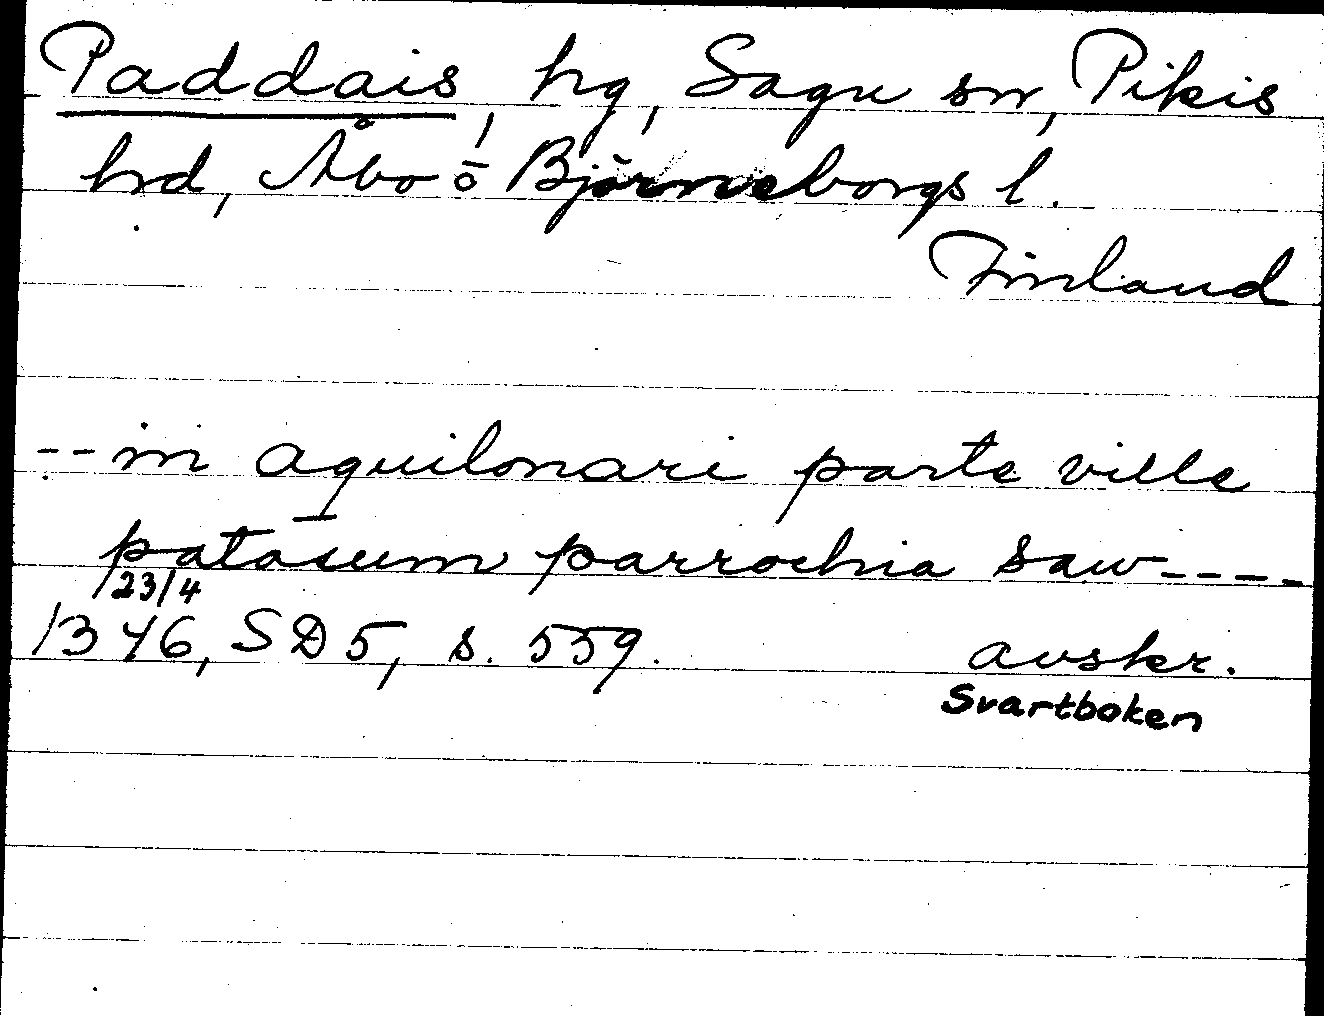 Paddais, hg, Sagu sn, Pikis
hrd, Åbo o Björneborgs l.
Finland
-- in aquilonari parte ville
patasum parrochia saw----
23/4
1346, SD 5, s. 559. avskr.
Svartboken